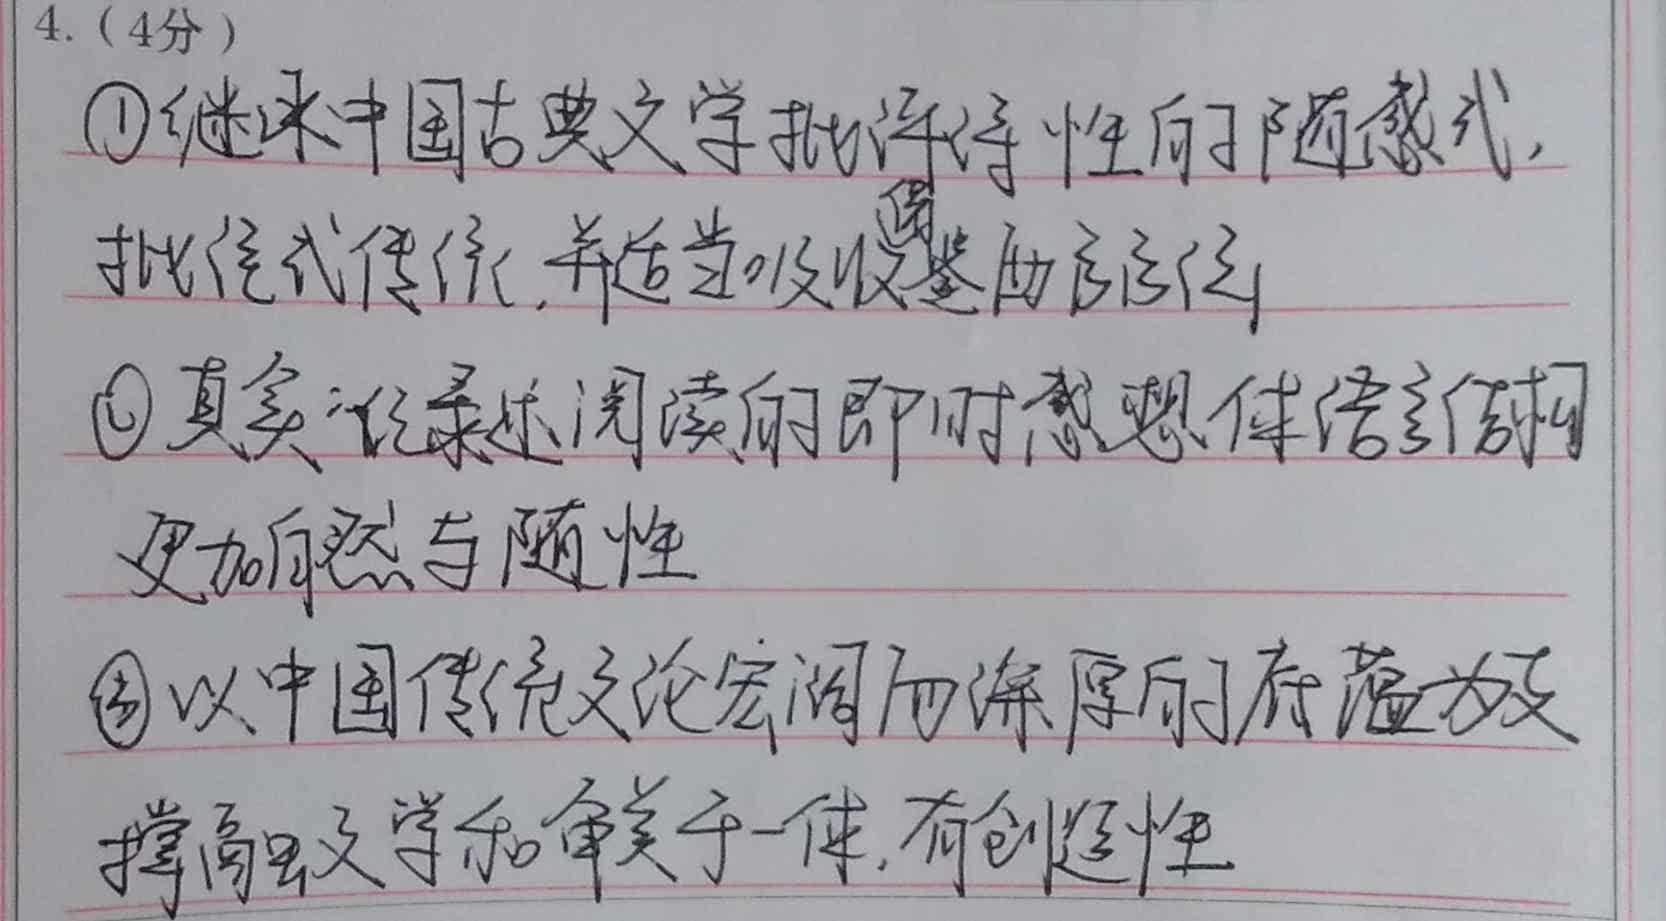 4.（4分）
①继承中国古典文学批评诗性的随感式，
批注式传统，并适当吸收借鉴西方语言
②真实记录述阅读的即时感想使语言结构
更加自然与随性
③以中国传统文论宏阔而深厚的底蕴为支
撑高且文学和审美于一体，有创造性